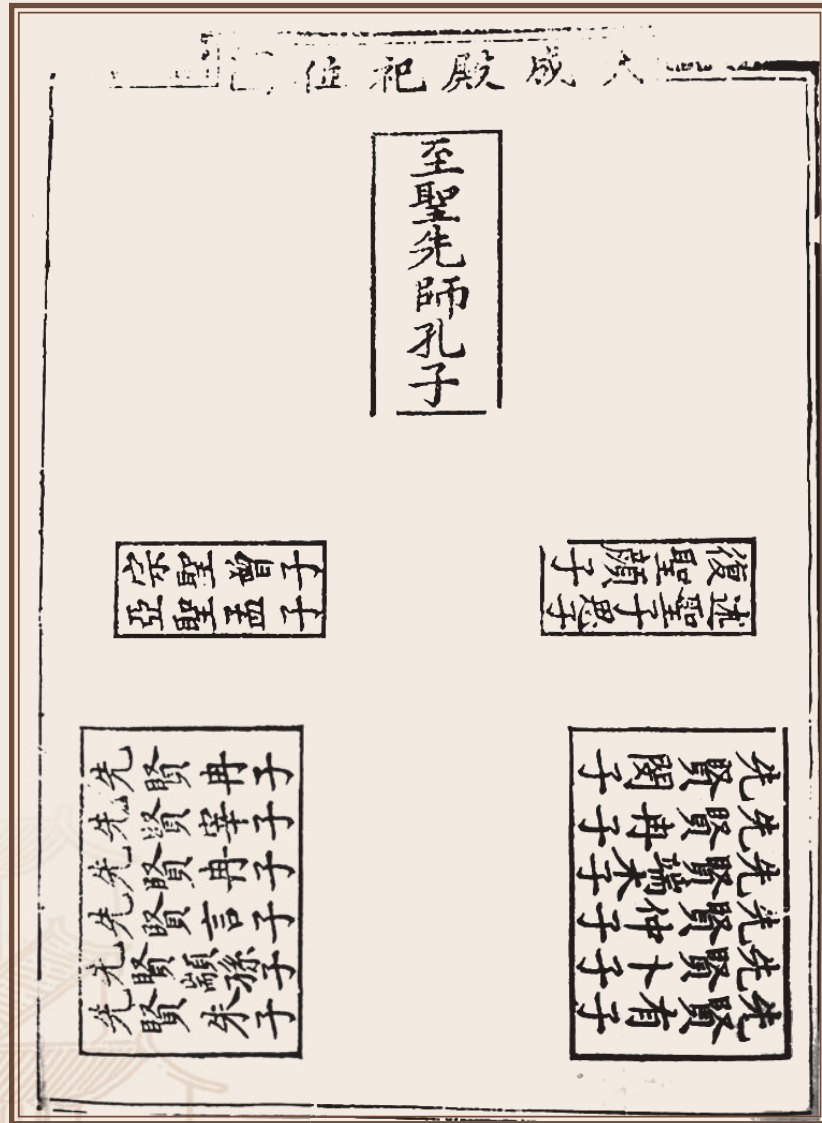 大成殿祀位
至聖先師孔子
復聖顏子
述聖子思子
宗聖曾子
亞聖孟子
先賢閔子
先賢冉子
先賢端木子
先賢仲子
先賢卜子
先賢有子
先賢冉子
先賢宰子
先賢冉子
先賢言子
先賢顓孫子
先賢朱子